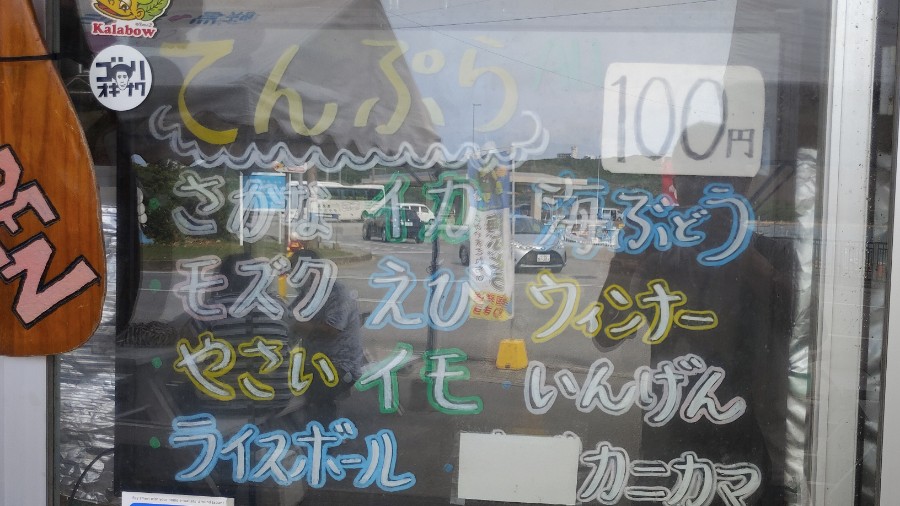 Kalabow
ゴリ
オキナワ
OPEN
てんぷら 100円
さかな イカ 海ぶどう
モズク えび ウィンナー
やさい イモ いんげん
ライスボール カニカマ